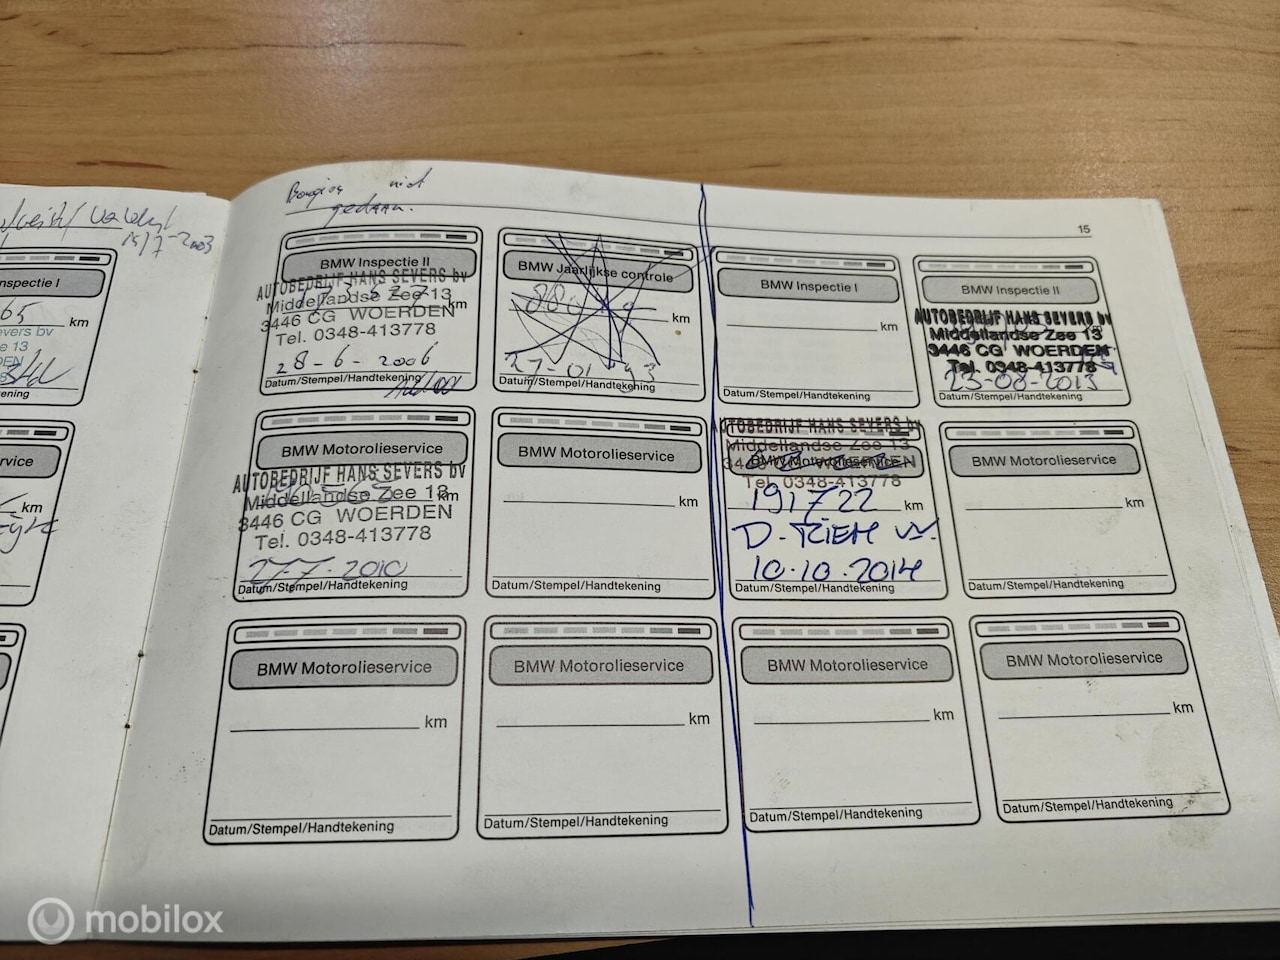 15/7-2003
nspectie I
65
km
evers bv
e 13
DEN
ening
rvice
km
Bougies niet
gedaan.
15
BMW Inspectie II
AUTOBEDRIJF HANS SEVERS bv
Middellandse Zee 13
km
3446 CG WOERDEN
Tel. 0348-413778
28-6-2006
Datum/Stempel/Handtekening
BMW Jaarlijkse controle
km
Datum/Stempel/Handtekening
BMW Inspectie I
km
Datum/Stempel/Handtekening
BMW Inspectie II
AUTOBEDRIJF HANS SEVERS bv
Middellandse Zee 13
3446 CG WOERDEN
Tel. 0348-413778
23-08-2013
Datum/Stempel/Handtekening
BMW Motorolieservice
AUTOBEDRIJF HANS SEVERS bv
Middellandse Zee 13
km
3446 CG WOERDEN
Tel. 0348-413778
27-7-2010
Datum/Stempel/Handtekening
BMW Motorolieservice
km
Datum/Stempel/Handtekening
AUTOBEDRIJF HANS SEVERS bv
Middellandse Zee 13
3446 CG WOERDEN
BMW Motorolieservice
Tel. 0348-413778
191722 km
D. RIEM VV.
10.10.2014
Datum/Stempel/Handtekening
BMW Motorolieservice
km
Datum/Stempel/Handtekening
BMW Motorolieservice
km
Datum/Stempel/Handtekening
BMW Motorolieservice
km
Datum/Stempel/Handtekening
BMW Motorolieservice
km
Datum/Stempel/Handtekening
BMW Motorolieservice
km
Datum/Stempel/Handtekening
mobilox